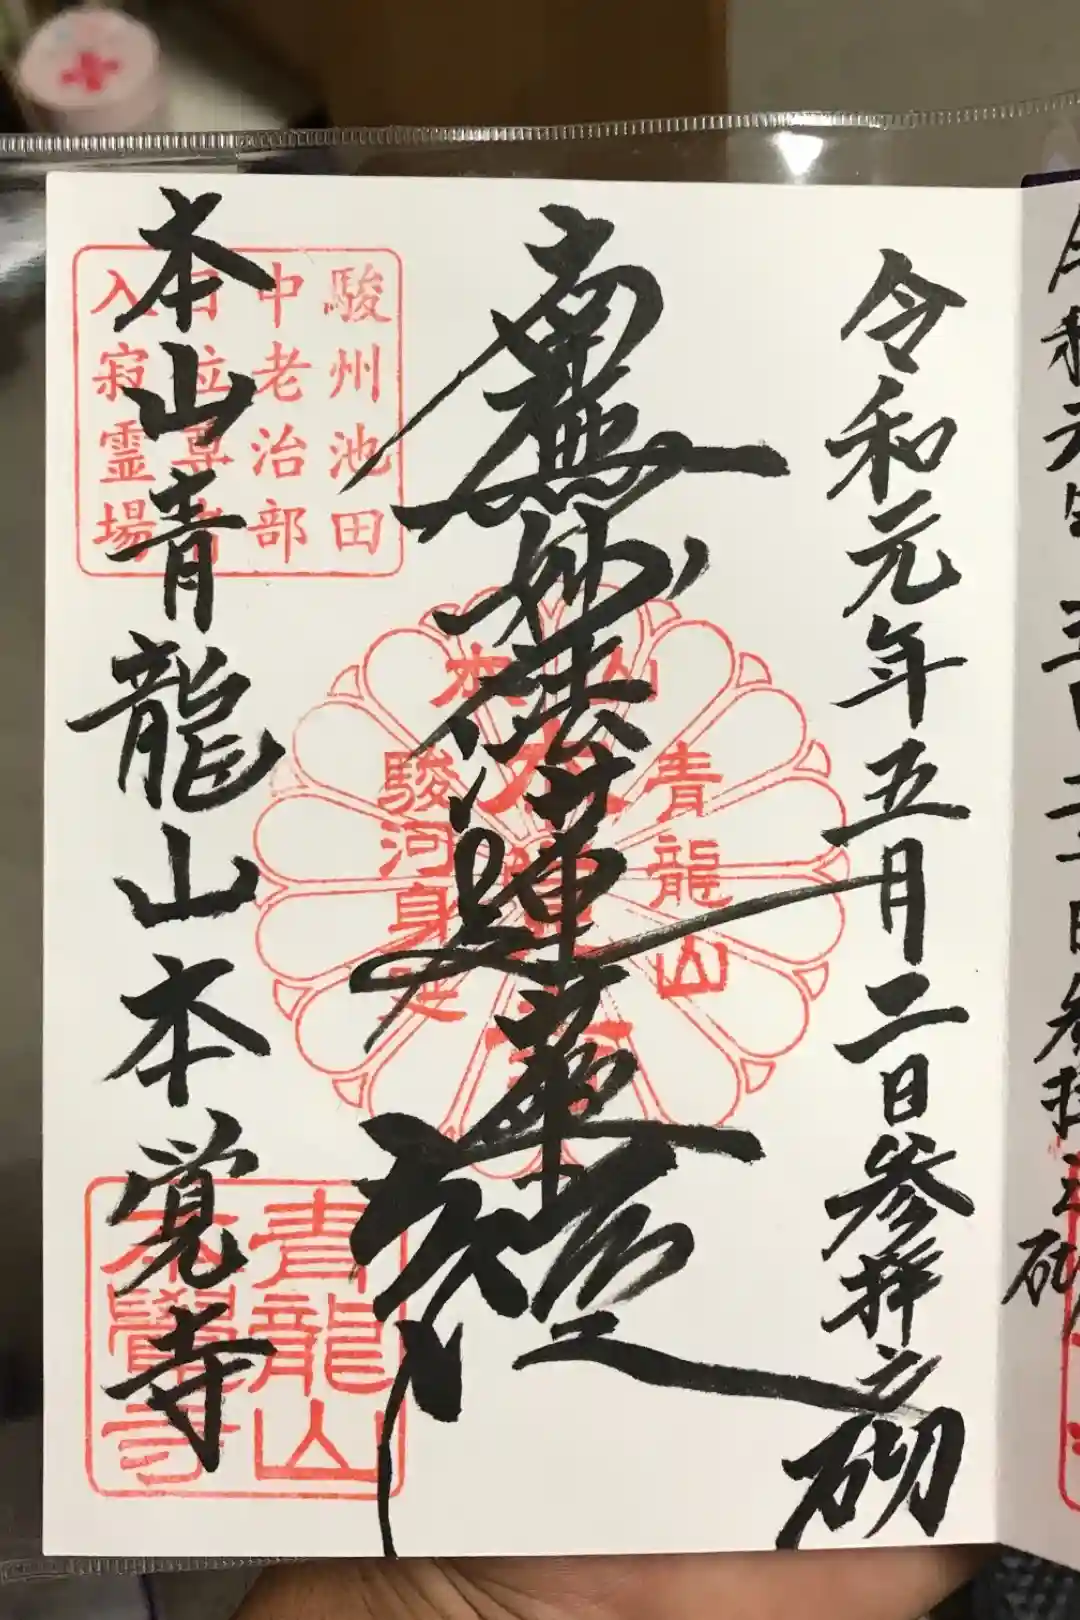 令和元年五月二日参拝之砌
南無妙法蓮華経
本山青龍山本覚寺
駿州池田
中老治部
日位尊者
入寂霊場
本山
青龍山
駿河身延
青龍山
本覺寺